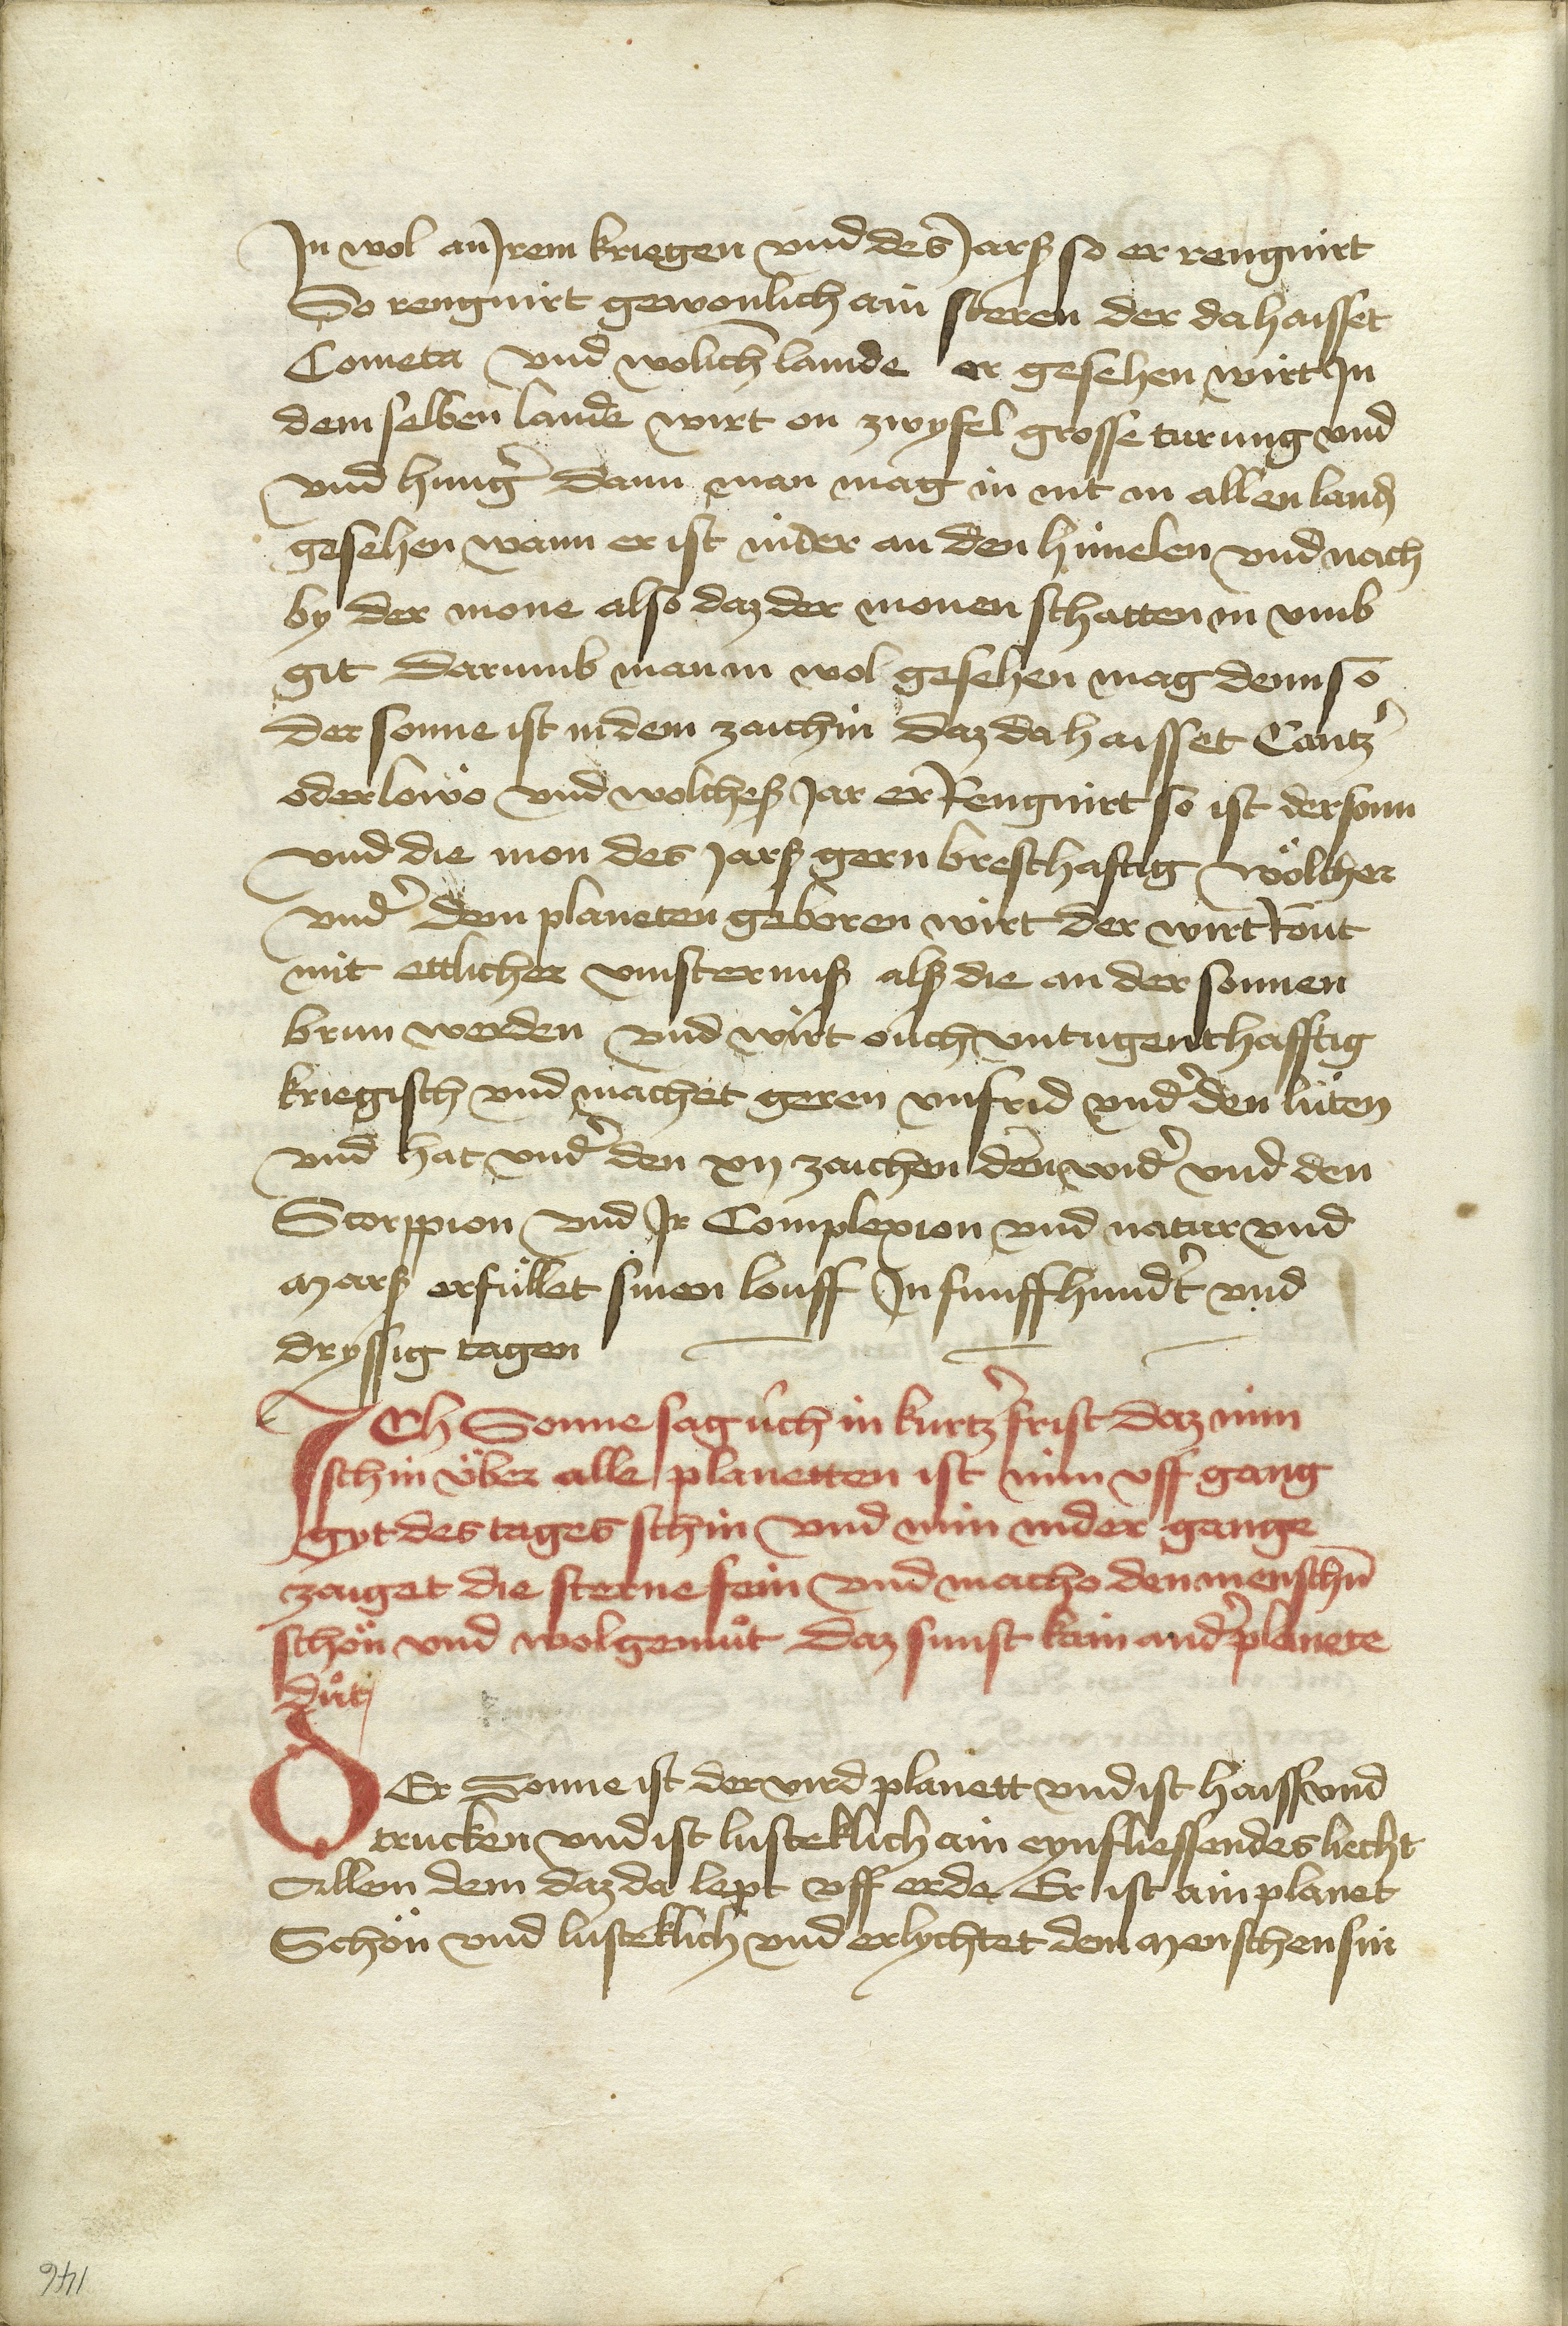 Jn wol an Jrem kriegen vnd des Jarß so er rengnirt
So rengnirt gewonlich ain steren der da haisset
Cometa vnd wolichē lannde er gesehen wirt Jn
dem selben lande wirt on zwyfel grosse turung vnd
vnd hungr̄ dann man mag in nit in allen landn̄
gesehen wann er ist nider an den himelen vnd nach
by der mone also daz der monen schatten in vmb
git darumb man in wol gesehen mag denn so
der sonne ist in dem zaichin daz da haisset Cantzr̄
oder lowo vnd wolcheß Jar er Rengnirt so ist der sonn
vnd die mon des Jarß gern bresthaftig wölcher
vndr̄ dem planeten geboren wirt der wirt Rōut
mit ettlicher vinsternuß alß die an der sonnen
brun werden vnd wirt ouch vntugenthafftig
kriegisch vnd machet geren vnfrid vndr̄ den lüten
vnd hat vndr̄ den xij zaichen den widr̄ vnd den
Scorppion vnd Jr Complexion vnd natur vnd
marß erfüllet sinen louff Jn funffhundr̄t vnd
dryssig tagen
JCh Sonne sag üch in kurtzr̄ frist daz min
schin über alle planetten ist min vff gang
gyt des tages schin vnd min nider gange
zaiget die sterne fein vnd macho den menschn̄
schön vnd wolgemuͦt daz sunst kain andr̄ planete
duͦt
DEr Sonne ist der vird planett vnd ist haiss vnd
trucken vnd ist lusteklich ain eynfliessendes liecht
Allem dem daz da lept vff erde Er ist ain planet
Schön vnd lusteklich vnd erlychtet dem menschen sin
146